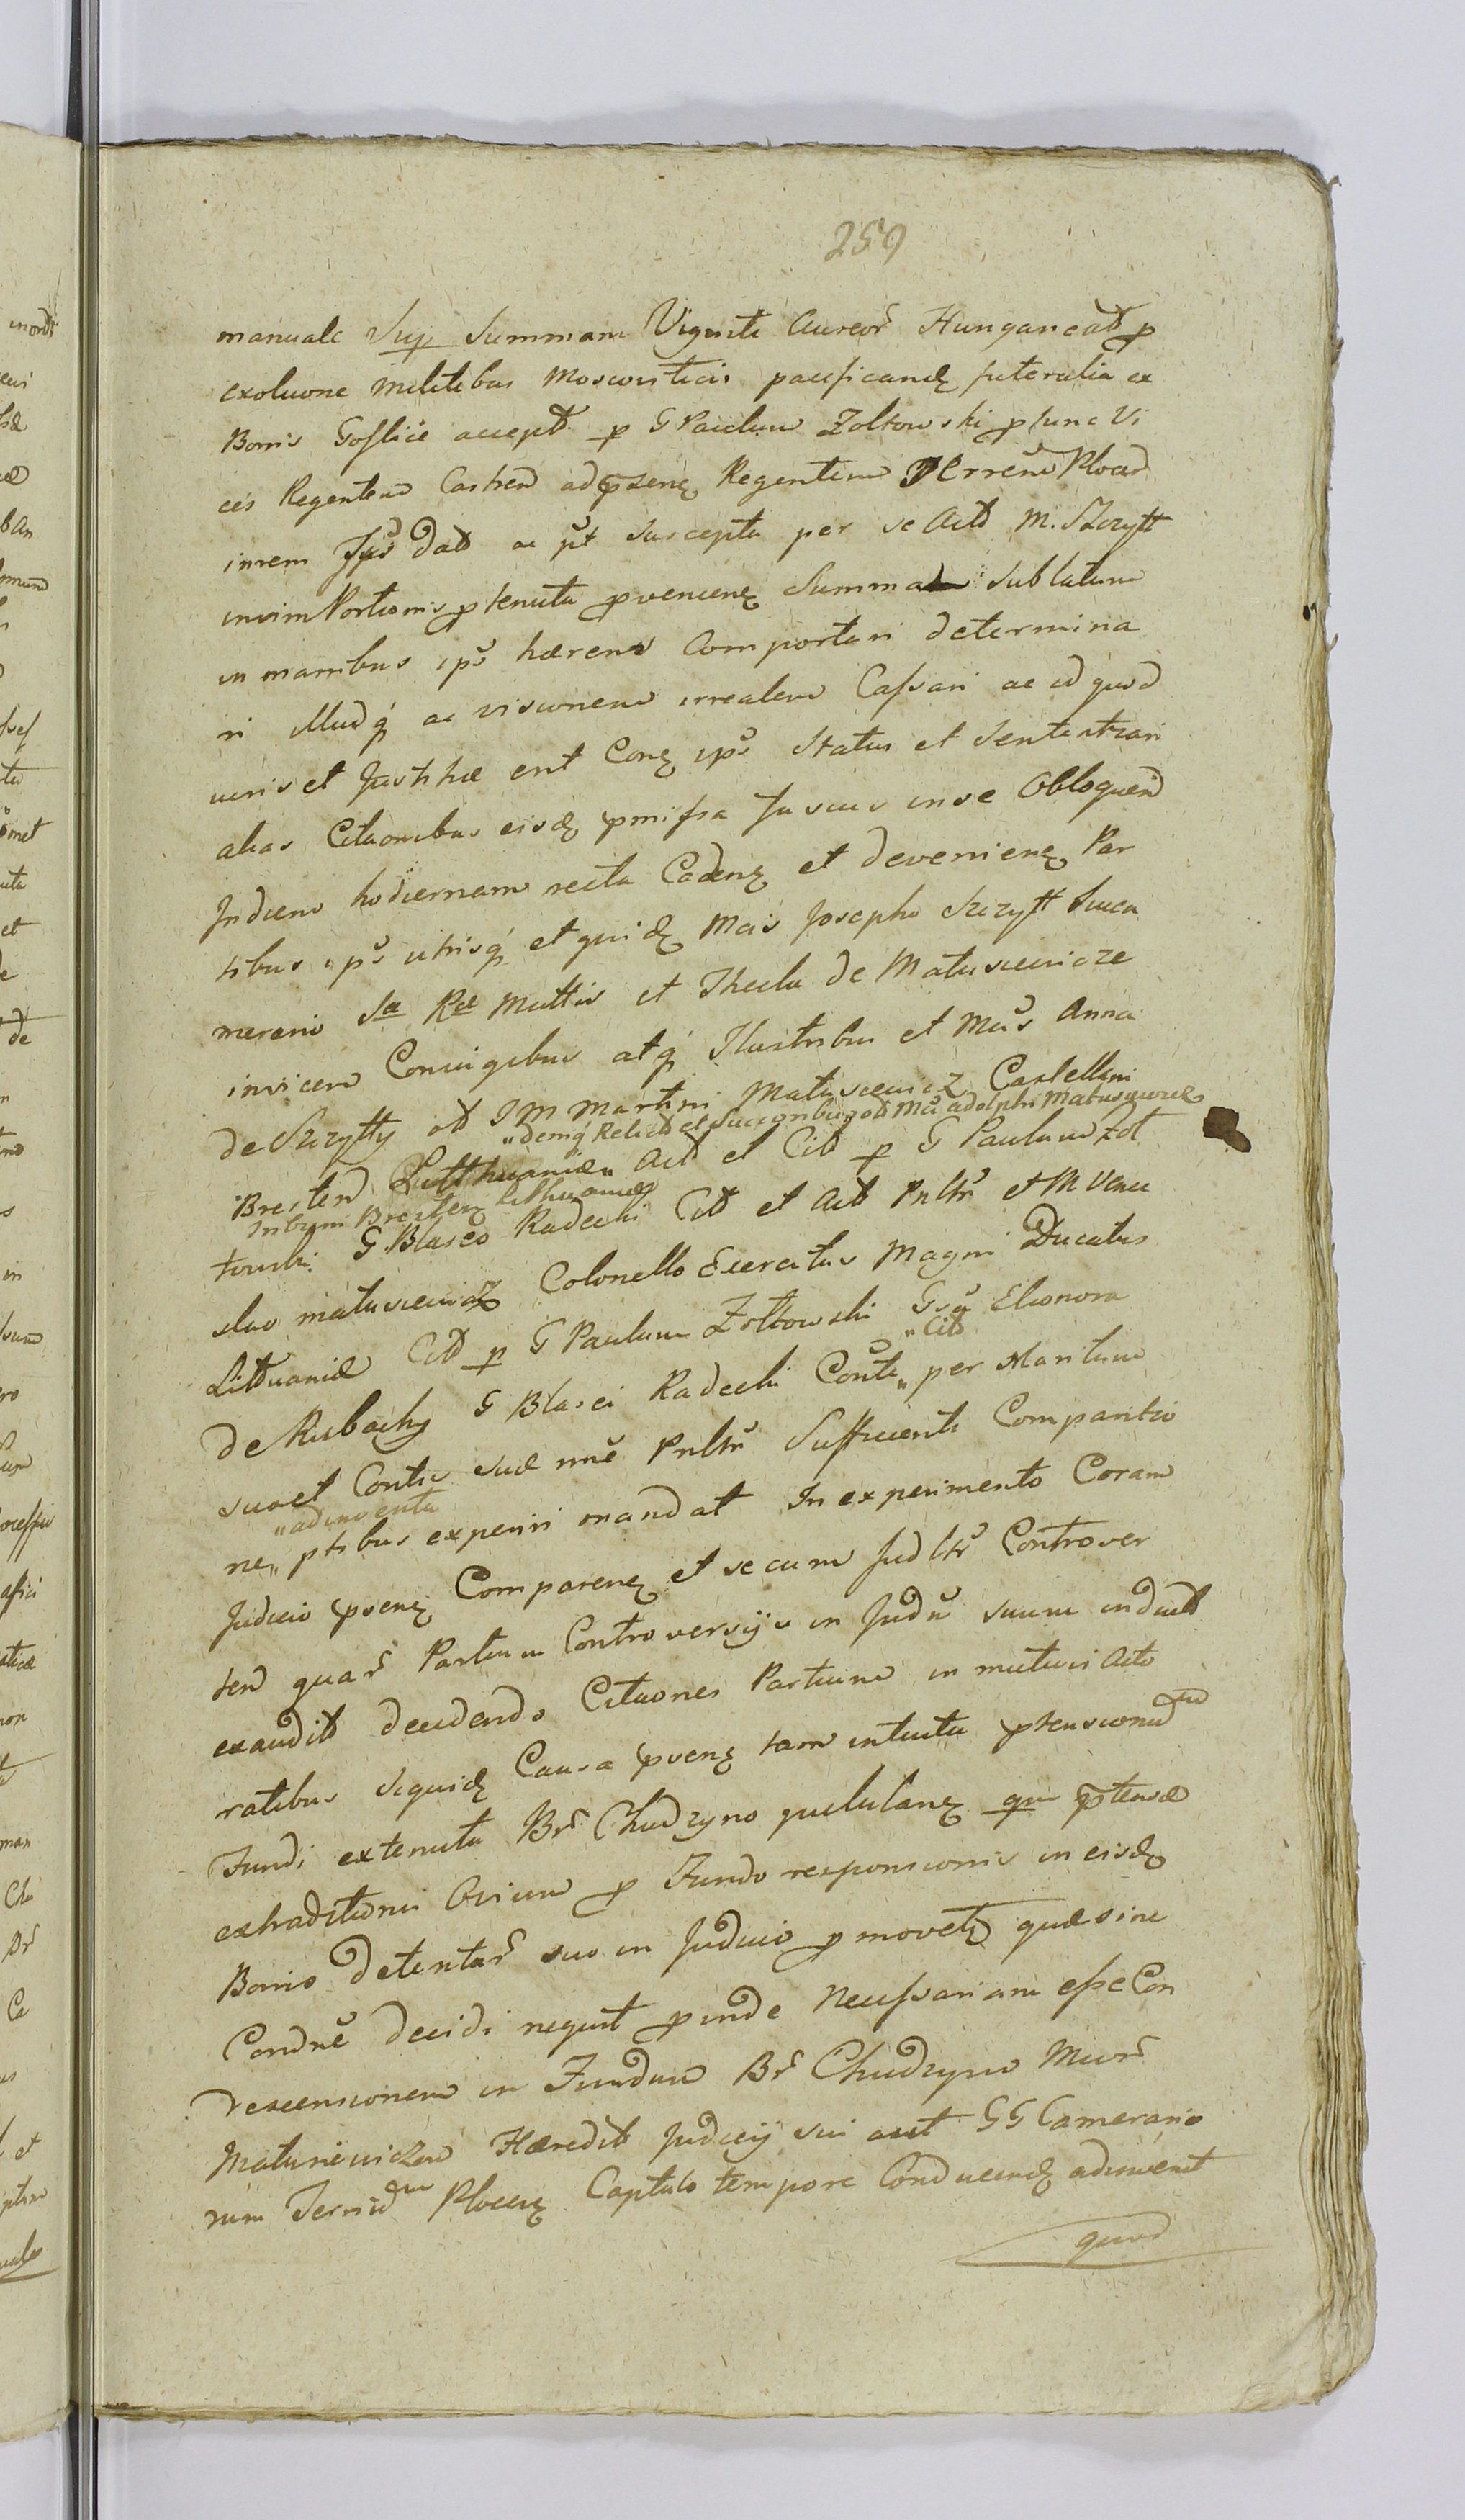 259
manuale Sup Summam Viginti Aureor Hungaricat p
exoluone militibus Moscoviticis pacificand futeralia ex
Bonis Goslice accept p G Paulum Zoltowski p tunc Vi
ces Regentem Castren ad psens Regentem Terrenu Plocen
inrem Ips dat ac pt suscepta per se Acto M. Szczytt
Portionis p tenuta provenien Summa sublatum
in manibus ips haerens Comportari determina
ri illudq ac visionem irrealem Cassari ac id quod
iuris et Justitiae erit Conq ips Status et Sententiari
alias Citaonibus eisd pmissa fusius in se Obloquen
In diem hodiernam recta Caden et devenien Par
tibus ips utrisq et quid Mcis Josepho Szczytt Succa
merario Sa Rae Mattis et Thecla de Matuscewicze
invicem Conjugibus atq Illustribus et Mcis Anna
de Szczytty ol IM Martini Matuscewicz Castellani
"demq Relict et Successoribus ol Mci Adolphi Matuscewicz
Bresten Litthuaniae" Act et Cit p G Paulum Zol
Tribuni Bresten Lithuaniae
towski G Blasio Radecki Cit et Act Pnltr et M Vence
slao Matuscewicz Colonello Exercitus Magni Ducatus
Lithuaniae Cit p G Paulum Zoltowski Gsa Eleonora
"Cit
de Rubachy G Blasei Radecki Conte" per Maritum
suo et Contis suae nne Pnltr Sufficienti Comparitio
"adinventa
ne" ptibus experiri mandat In experimento Coram
Judicio psens Comparen et secum Judltr Controver
ten quar Partium Controversijs in Judu suum induct
exaudit decidendo Citaones Partium in mutui Acto
ratibus siquid Causa psens tam intuitu ptensionu
Fundi ex tenuta Br Chudzyno pullulans qm ptensae
extraditionis Ovium p Fundo responsionis in eisd
Bonis detentar suo in Judicio p movet quae sine
Condne decidi nequit p inde Necessariam esse Con
descensionem in Fundum Br Chudzyno Mcor
Matusiewiczow Haeredit Judicij sui aut GG Camerario
rum Terrium Plocen Captato tempore Conducend adinvenit
quod